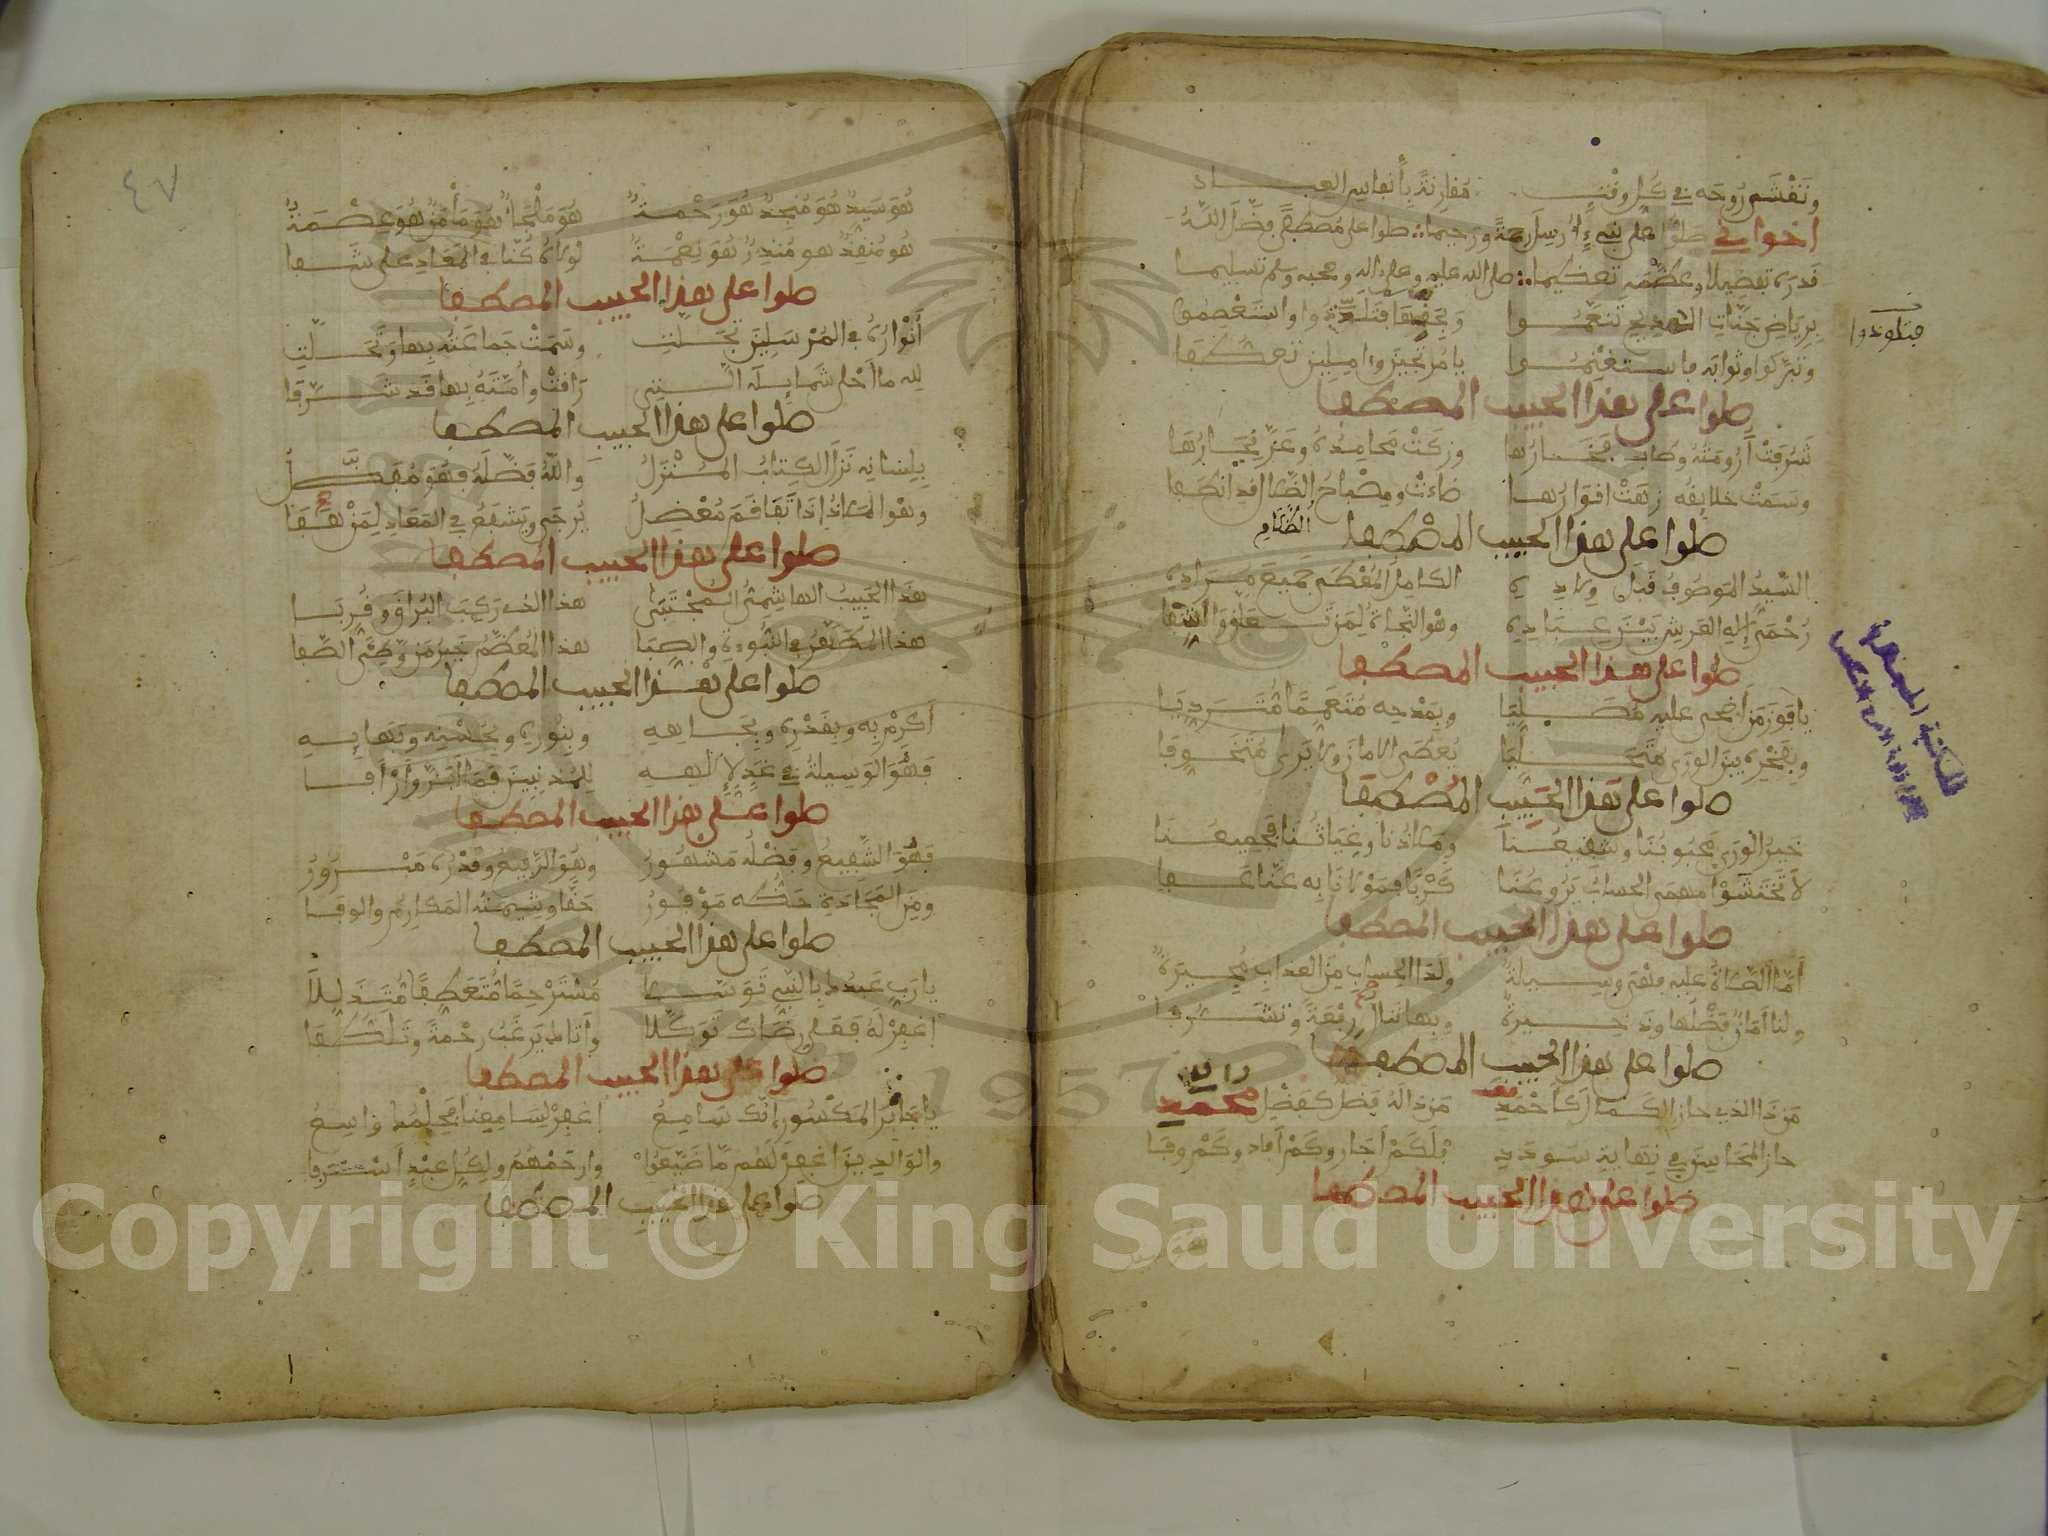 وتغشم روحه في كل وقت مقارنة بأنفاس العباد
اخواني صلوا على نبيء أرسل رحمة ورحيما صلوا على مصطفى فضل الله
قدره تفضيلا وعظمه تعظيما صل الله عليه وعلى اله وصحبه وسلم تسليما
برياض جنات المديح تنعموا
وتبركوا وثوابه فاستغنموا يا مرتجين واملين تعطفا
صلوا على هذا الحبيب المصطفى
شرفت أرومته وطاب فخارها وزكت محامده وعز نجارها
وسمت خلايقه زهت انوارها ضاءت ومصباح الضلال قد انطفا
الظلام
صلوا على هذا الحبيب المصطفى
السيد الموصوف قبل ولاده الكامل المعطى جميع مراده
رحمى إله العرش بين عباده وهو النجاة لمن
صلوا على هذا الحبيب المصطفى
يا فوز من أضحى عليه مصليا وبمدحه متعمما مترديا
وبفخره بين الورى متحليا يعطى الامان ولا يرى متخوفا
صلوا على هذا الحبيب المصطفى
خير الورى محبوبنا وشفيعنا وملاذنا وغياثنا
لا تختشوا مهمى الحساب يروعنا كربا فمولانا به عنا عفا
صلوا على هذا الحبيب المصطفى
أما الصلاة عليه فهي وسيلة ولدا الحساب من العذاب مجيرة
ولنا أمان فضلها وذخيرة وبها ننال رفعة وتشرفا
صلوا على هذا الحبيب المصطفى
من ذا الذي حاز الكمال كأحمد من ذا له فضل كفضل محمد
حاز المحاسن في نهاية سودد فلكم أجار وكم أفاد وكم وفا
صلوا على هذا الحبيب المصطفى
هو سيد
٤٧
هو سيد هو منجد هو رحمة هو ملجأ هو مأمن هو عصمة
هو منقذ هو منذر هو نعمة لولاه كنا في المعاد على شفا
صلوا على هذا الحبيب المصطفى
أنواره في المرسلين تجلت وسمت جماعته بها وتحلت
لله ما أحلى شمايله التي رافت وأمته بها قد شرفا
صلوا على هذا الحبيب المصطفى
بلسانه نزل الكتاب المنزل والله فضله فهو مفضل
وهو الملاذ إذا تفاقم معضل يرجى ويشفع في المعاد لمن هفا
صلوا على هذا الحبيب المصطفى
هذا الحبيب الهاشمي المجتبى هذا الذي ركب البراق وقربا
هذا المطهر في النبوءة والصبا هذا المعظم خير من وطئ الصفا
صلوا على هذا الحبيب المصطفى
أكرم به وبقدره وبجاهه وبنوره وبحسنه وبهايه
فهو الوسيلة في غد لإلهه للمذنبين فما أبر وأرأفا
صلوا على هذا الحبيب المصطفى
فهو الشفيع وفضله مشهور وهو الرفيع وقدره مبرور
ومن المجادة حظه موفور حقا وشيمته المكارم والوفا
صلوا على هذا الحبيب المصطفى
يا رب عبدك بالنبي توسلا مسترحما متعطفا متذللا
اغفر له فعلى رضاك توكلا وأتاك يرغب رحمة وتلطفا
صلوا على هذا الحبيب المصطفى
يا جابر المكسور إنك سامع اغفر لسامعنا فحلمك واسع
والوالدين اغفر لهم ما ضيعوا وارحمهم ولكل عبد أسرفا
صلوا على هذا الحبيب المصطفى
Copyright © King Saud University
1957